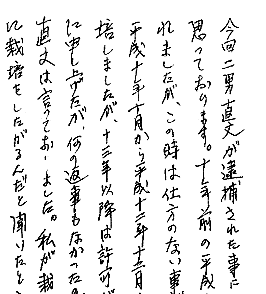 今回二男直文が逮捕された事に
思っております。十七年前の平成
れましたが、この時は仕方のない事
平成十年十月から平成十二年十二月
培しましたが、十三年以降は許可が
に申し上げたが、何の返事もなかった
直文は言っておりました。私が栽
に栽培をしたがるんだと聞いたところ